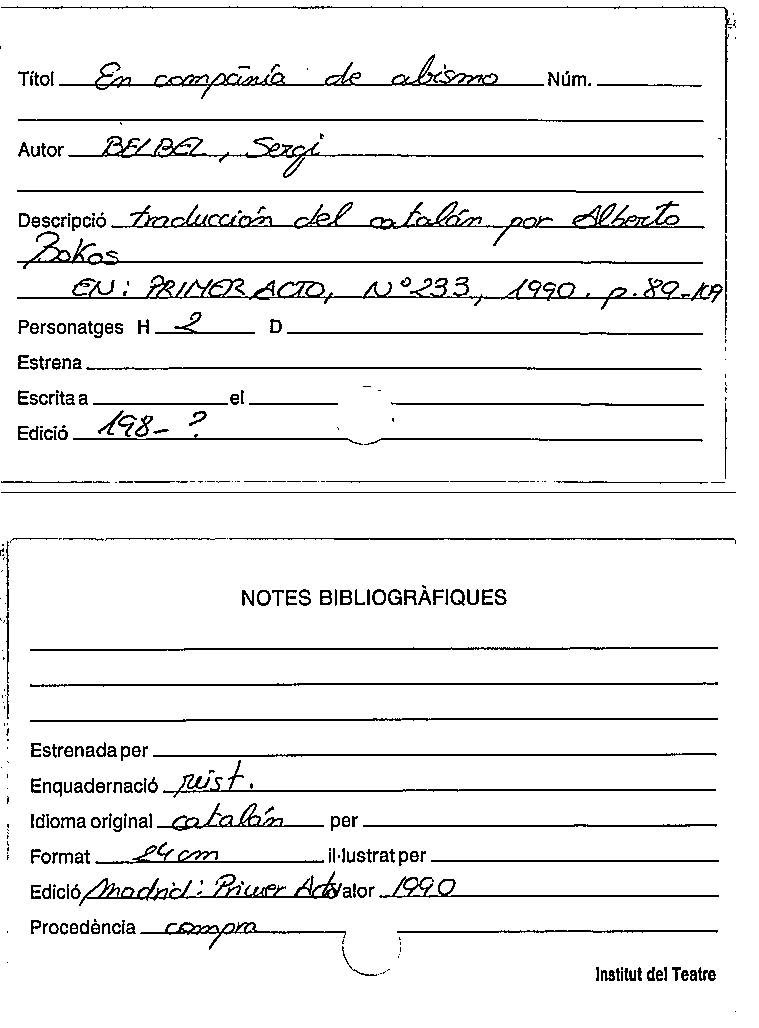 Títol En compañía de abismo Núm.
Autor BELBEL, Sergi
Descripció traducción del catalán por Alberto
Bokos
EN: PRIMER ACTO, Nº 233, 1990. p. 89-109
Personatges H 2 D
Estrena
Escrita a el
Edició 198- ?
NOTES BIBLIOGRÀFIQUES
Estrenada per
Enquadernació
Idioma original catalán per
Format 24 cm il·lustrat per
Edició Madrid: Primer Acto Valor 1990
Procedència compra
Institut del Teatre